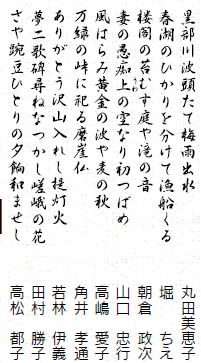 黒部川波頭たて梅雨出水　丸田美恵子
春湖のひかりを分けて漁船くる　堀　ちえ
楼閣の苔むす庭や滝の音　朝倉　政次
妻の愚痴上の空なり初つばめ　山口　忠行
風はらみ黄金の波や麦の秋　高嶋　愛子
万緑の峠に祀る磨崖仏　角井　孝通
ありがとう沢山入れし提灯火　若林　伊義
夢二歌碑尋ねなつかし嵯峨の花　田村　勝子
さや豌豆ひとりの夕餉和ませし　高松　都子